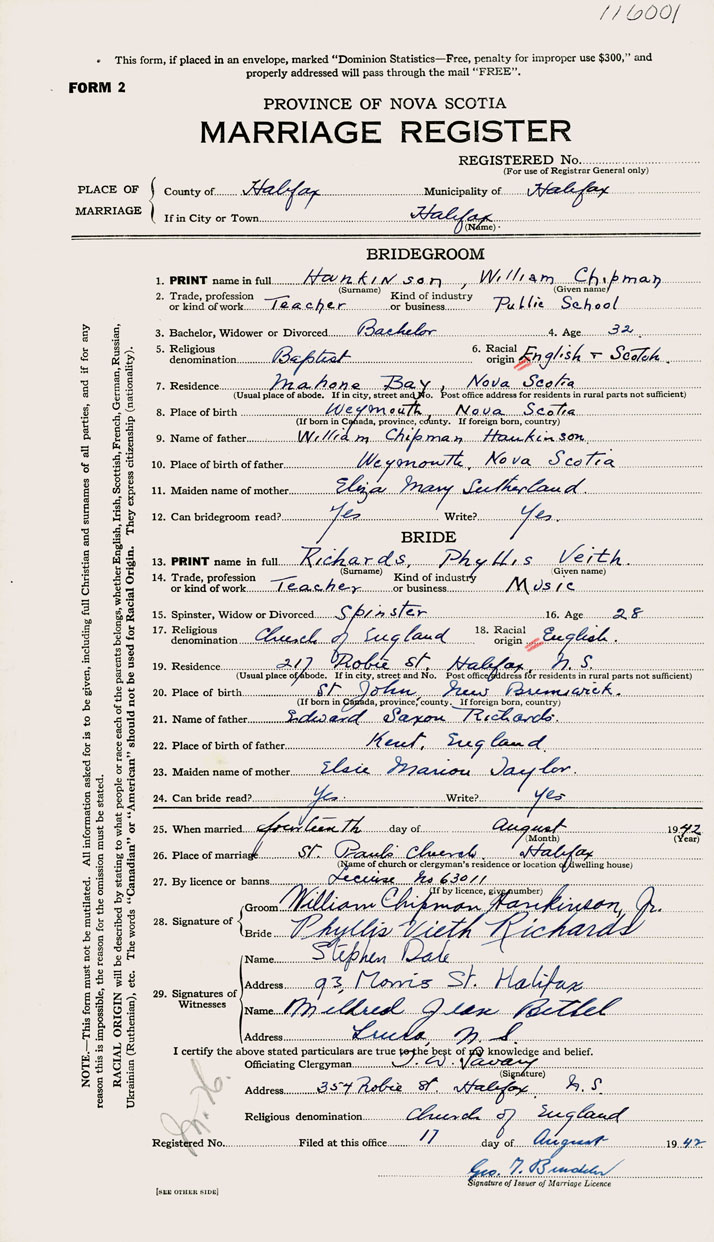 116001
This form, if placed in an envelope, marked "Dominion Statistics—Free, penalty for improper use $300," and
properly addressed will pass through the mail "FREE".
FORM 2
PROVINCE OF NOVA SCOTIA
MARRIAGE REGISTER
REGISTERED No.
(For use of Registrar General only)
PLACE OF MARRIAGE
County of Halifax Municipality of Halifax
If in City or Town Halifax
(Name)
BRIDEGROOM
1. PRINT name in full Hankinson, William Chipman
(Surname) (Given name)
2. Trade, profession or kind of work Teacher Kind of industry or business Public School
3. Bachelor, Widower or Divorced Bachelor 4. Age 32
5. Religious denomination Baptist 6. Racial origin English + Scotch
7. Residence Mahone Bay, Nova Scotia
(Usual place of abode. If in city, street and No. Post office address for residents in rural parts not sufficient)
8. Place of birth Weymouth, Nova Scotia
(If born in Canada, province, county. If foreign born, country)
9. Name of father William Chipman Hankinson
10. Place of birth of father Weymouth, Nova Scotia
11. Maiden name of mother Eliza Mary Sutherland
12. Can bridegroom read? Yes Write? Yes.
BRIDE
13. PRINT name in full Richards, Phyllis Veith.
(Surname) (Given name)
14. Trade, profession or kind of work Teacher Kind of industry or business Music
15. Spinster, Widow or Divorced Spinster 16. Age 28
17. Religious denomination Church of England 18. Racial origin English.
19. Residence 217 Robie St. Halifax, N.S.
(Usual place of abode. If in city, street and No. Post office address for residents in rural parts not sufficient)
20. Place of birth St. John, New Brunswick.
(If born in Canada, province, county. If foreign born, country)
21. Name of father Edward Saxon Richards.
22. Place of birth of father Kent, England
23. Maiden name of mother Elsie Marion Taylor.
24. Can bride read? Yes. Write? Yes
25. When married fourteenth day of August 1942
(Month) (Year)
26. Place of marriage St. Paul's Church. Halifax
(Name of church or clergyman's residence or location of dwelling house)
27. By licence or banns License No 63011
(If by licence, give number)
28. Signature of
Groom William Chipman Hankinson, Jr.
Bride Phyllis Vieth Richards
29. Signatures of Witnesses
Name Stephen Dale
Address 93 Morris St. Halifax
Name Mildred Jean Bethel
Address N.S.
I certify the above stated particulars are true to the best of my knowledge and belief.
Officiating Clergyman T. W. Savary
(Signature)
Address 354 Robie St. Halifax N.S
Religious denomination Church of England
Registered No. Filed at this office 17 day of August 1942
Signature of Issuer of Marriage Licence
[SEE OTHER SIDE]
NOTE.—This form must not be mutilated. All information asked for is to be given, including full Christian and surnames of all parties, and if for any
reason this is impossible, the reason for the omission must be stated.
RACIAL ORIGIN will be described by stating to what people or race each of the parents belongs, whether English, Irish, Scottish, French, German, Russian,
Ukrainian (Ruthenian), etc. The words "Canadian" or "American" should not be used for Racial Origin. They express citizenship (nationality).